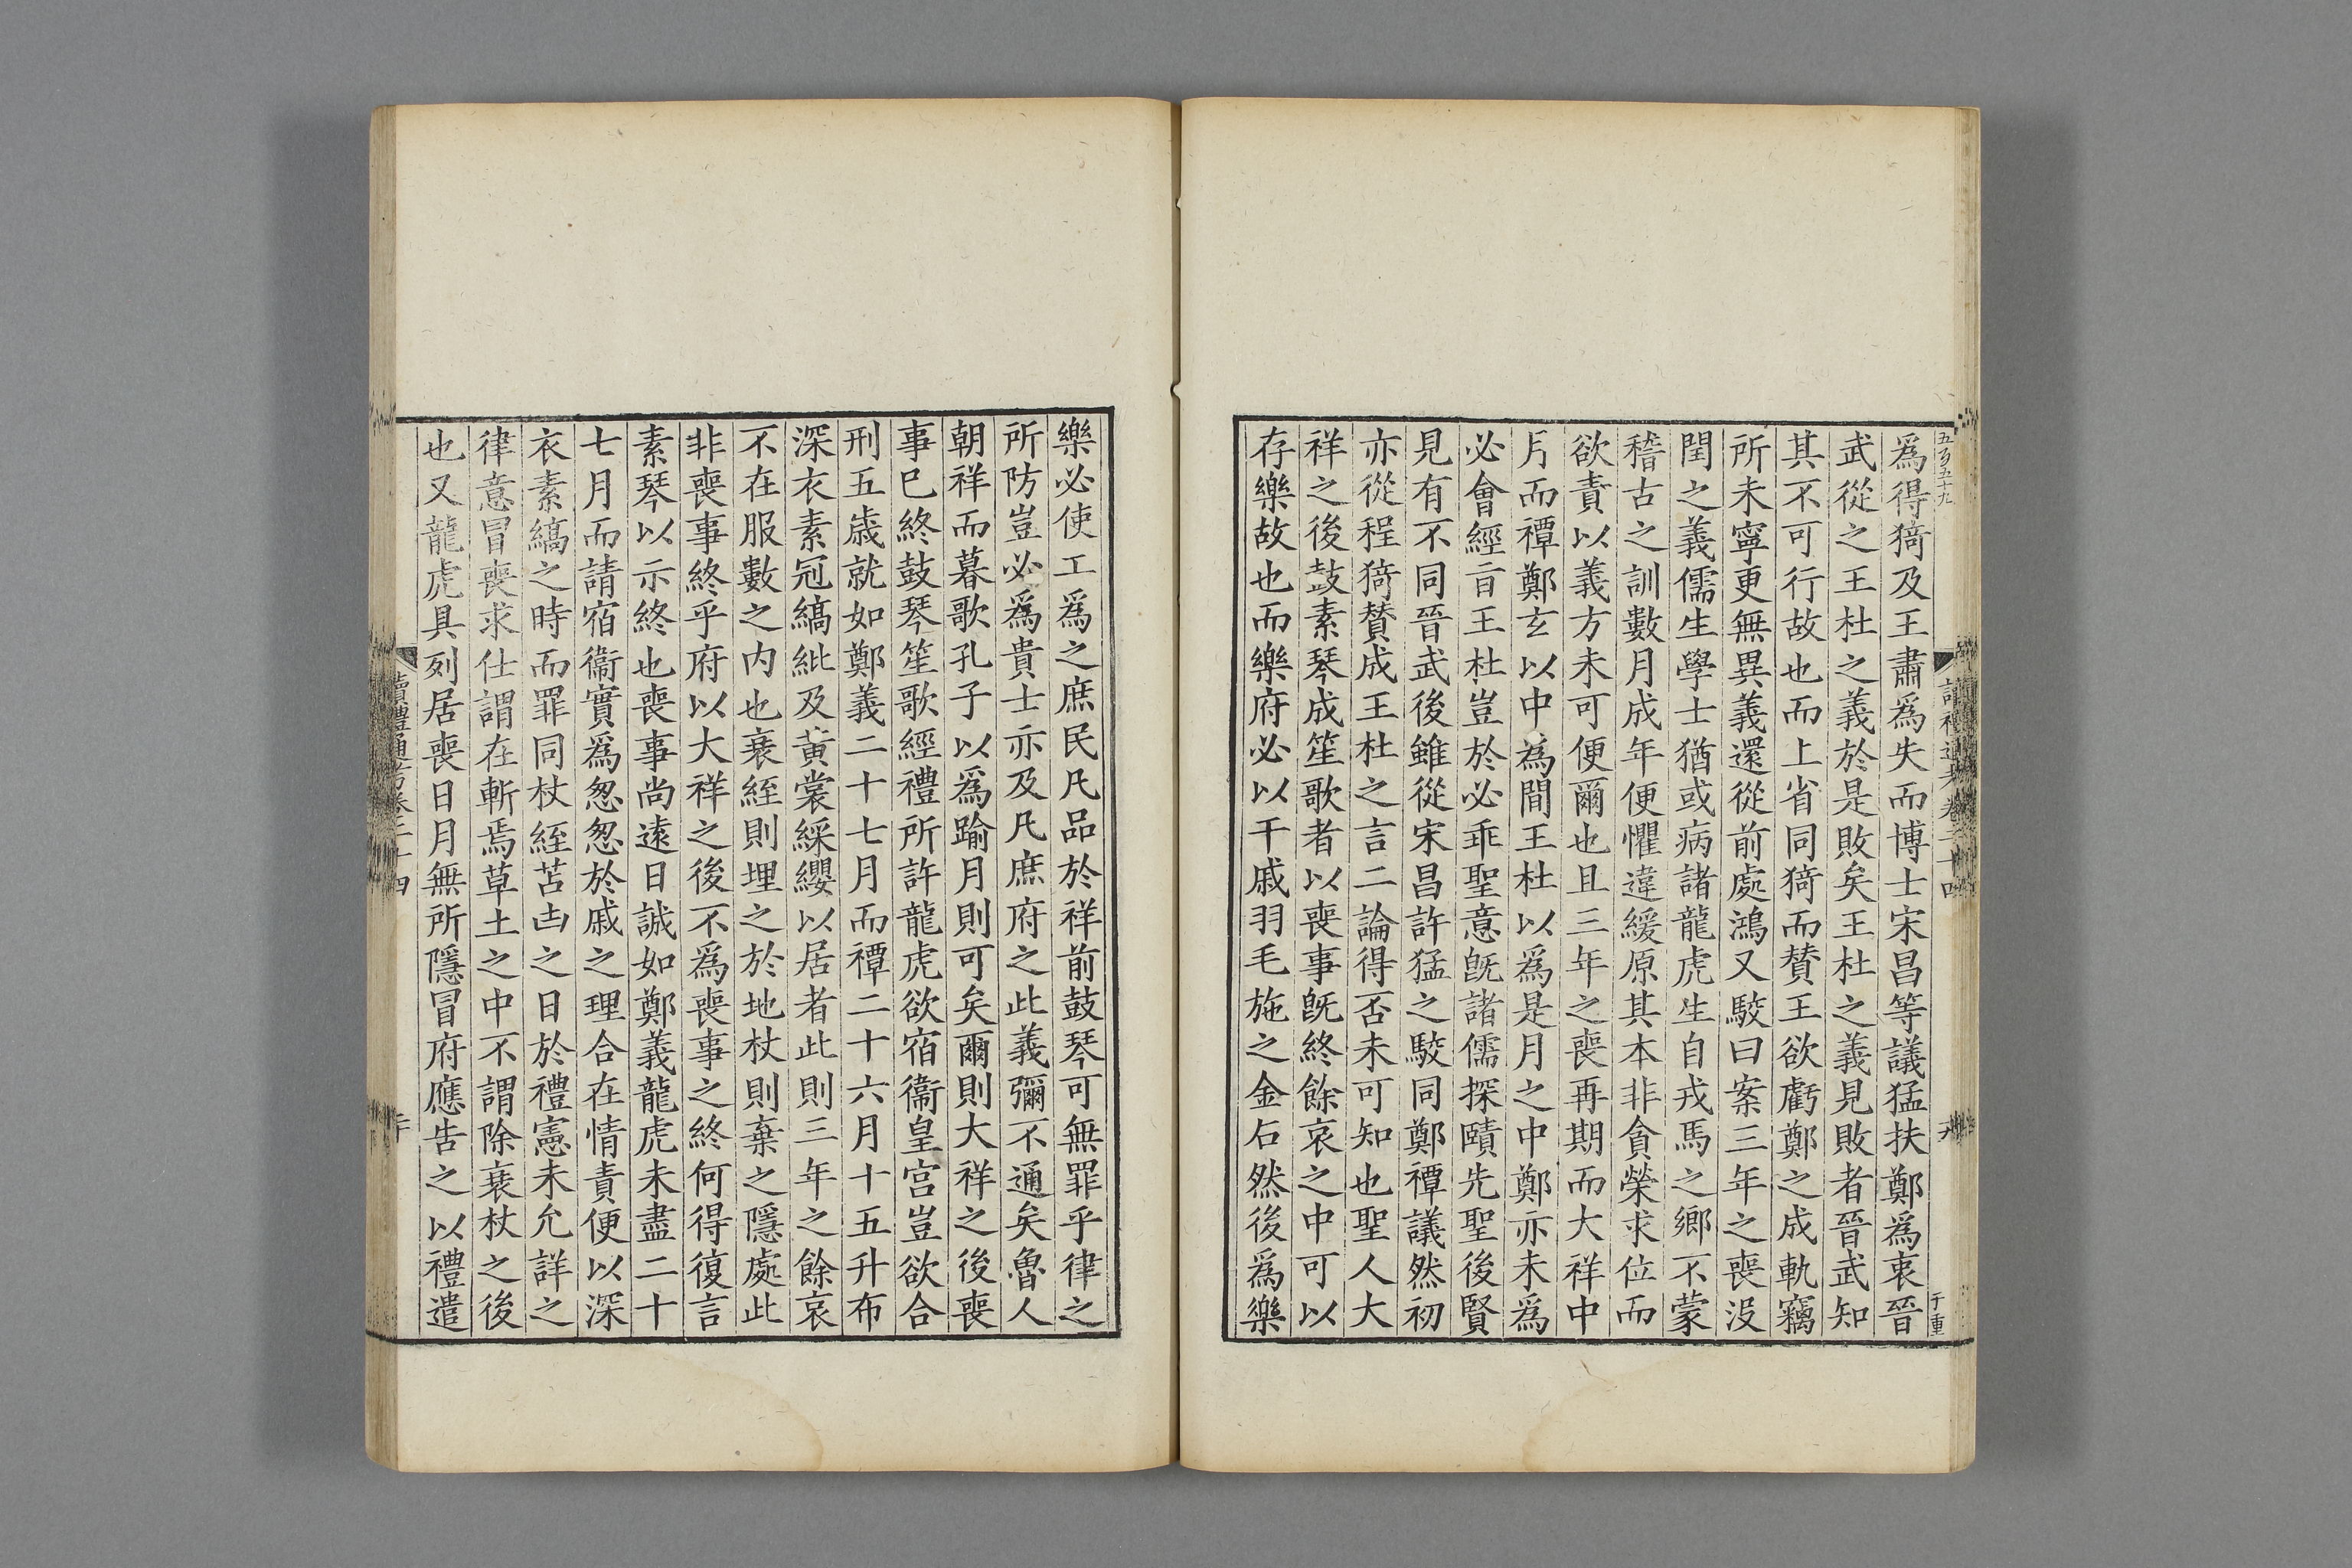 五百五十九
爲得猗及王肅爲失而博士宋昌等議猛扶鄭爲衷晉
武從之王杜之義於是敗矣王杜之義見敗者晉武知
其不可行故也而上省同猗而贊王欲虧鄭之成軌竊
所未寧更無異義還從前處鴻又駮曰案三年之喪没
閏之義儒生學士猶或病諸龍虎生自戎馬之鄉不蒙
稽古之訓數月成年便懼違緩原其本非貪榮求位而
欲責以義方未可便爾也且三年之喪再期而大祥中
月而禫鄭玄以中爲間王杜以爲是月之中鄭亦未爲
必會經旨王杜豈於必乖聖意旣諸儒探賾先聖後賢
見有不同晉武後雖從宋昌許猛之駮同鄭禫議然初
亦從程猗贊成王杜之言二論得否未可知也聖人大
祥之後鼓素琴成笙歌者以喪事旣終餘哀之中可以
存樂故也而樂府必以干戚羽毛施之金石然後爲樂
樂必使工爲之庶民凡品於祥前鼓琴可無罪乎律之
所防豈必爲貴士亦及凡庶府之此義彌不通矣魯人
朝祥而暮歌孔子以爲踰月則可矣爾則大祥之後喪
事巳終鼓琴笙歌經禮所許龍虎欲宿衞皇宮豈欲合
刑五歲就如鄭義二十七月而禫二十六月十五升布
深衣素冠縞紕及黃裳綵纓以居者此則三年之餘哀
不在服數之内也衰絰則埋之於地杖則棄之隱處此
非喪事終乎府以大祥之後不爲喪事之終何得復言
素琴以示終也喪事尚遠日誠如鄭義龍虎未盡二十
七月而請宿衞實爲忽忽於戚之理合在情責便以深
衣素縞之時而罪同杖絰苫凷之日於禮憲未允詳之
律意冒喪求仕謂在斬焉草土之中不謂除衰杖之後
也又龍虎具列居喪日月無所隱冒府應告之以禮遣
讀禮通考卷二十四
二十